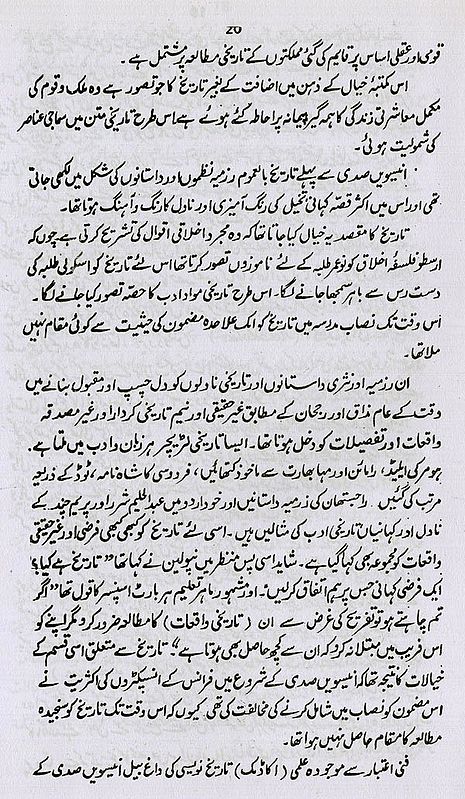 20
قومی اور عقلی اساس پر قائم کی گئی مملکتوں کے تاریخی مطالعہ پر مشتمل ہے۔
اس مکتبۂ خیال کے ذہن میں اضافت کے بغیر تاریخ کا جو تصور ہے وہ ملک و قوم کی
مکمل معاشرتی زندگی کا ہمہ گیر پیمانہ پر احاطہ کئے ہوئے ہے اس طرح تاریخی متن میں سماجی عناصر
کی شمولیت ہوئی۔
انیسویں صدی سے پہلے تاریخ بالعموم رزمیہ نظموں اور داستانوں کی شکل میں لکھی جاتی
تھی اور اس میں اکثر قصہ کہانی تخیل کی رنگ آمیزی اور ناول کا رنگ و آہنگ ہوتا تھا۔
تاریخ کا مقصد یہ خیال کیا جاتا تھا کہ وہ مجرد اخلاقی اقوال کی تشریح کرتی ہے چوں کہ
ارسطو فلسفۂ اخلاق کو نو عمر طلبہ کے لئے ناموزوں تصور کرتا تھا اس لئے تاریخ کو اسکولی طلبہ کی
دست رس سے باہر سمجھا جانے لگا۔ اس طرح تاریخی مواد ادب کا حصہ تصور کیا جانے لگا۔
اس وقت تک نصاب مدرسہ میں تاریخ کو ایک علاحدہ مضمون کی حیثیت سے کوئی مقام نہیں
ملا تھا۔
ان رزمیہ اور نثری داستانوں اور تاریخی ناولوں کو دل چسپ اور مقبول بنانے میں
وقت کے عام مذاق اور رجحان کے مطابق غیر حقیقی اور نیم تاریخی کردار اور غیر مصدقہ
واقعات اور تفصیلات کو دخل ہوتا تھا۔ ایسا تاریخی لٹریچر ہر زبان و ادب میں ملتا ہے۔
ہومر کی ایلیڈ، رامائن اور مہابھارت سے ماخوذ کتھائیں، فردوسی کا شاہ نامہ، ٹوڈ کے ذریعہ
مرتب کی گئیں راجستھان کی رزمیہ داستانیں اور خود اردو میں عبدالحلیم شرر اور پریم چند کے
ناول اور کہانیاں تاریخی ادب کی مثالیں ہیں۔ اسی لئے تاریخ کو کبھی کبھی فرضی اور غیر حقیقی
واقعات کا مجموعہ بھی کہا گیا ہے۔ شاید اسی پس منظر میں نپولین نے کہا تھا "تاریخ ہے کیا؟
ایک فرضی کہانی جس پر ہم اتفاق کرلیں۔ اور مشہور ماہر تعلیم ہربارٹ اسپنسر کا قول تھا "اگر
تم چاہتے ہو تو تفریح کی غرض سے ان (تاریخی واقعات) کا مطالعہ ضرور کرو مگر اپنے کو
اس فریب میں مبتلا نہ کرو کہ ان سے کچھ حاصل بھی ہوتا ہے"۔ تاریخ سے متعلق اسی قسم کے
خیالات کا نتیجہ تھا کہ انیسویں صدی کے شروع میں فرانس کے انسپکٹروں کی اکثریت نے
اس مضمون کو نصاب میں شامل کرنے کی مخالفت کی تھی کیوں کہ اس وقت تک تاریخ کو سنجیدہ
مطالعہ کا مقام حاصل نہیں ہوا تھا۔
فنی اعتبار سے موجودہ علمی (اکاڈمک) تاریخ نویسی کی داغ بیل انیسویں صدی کے